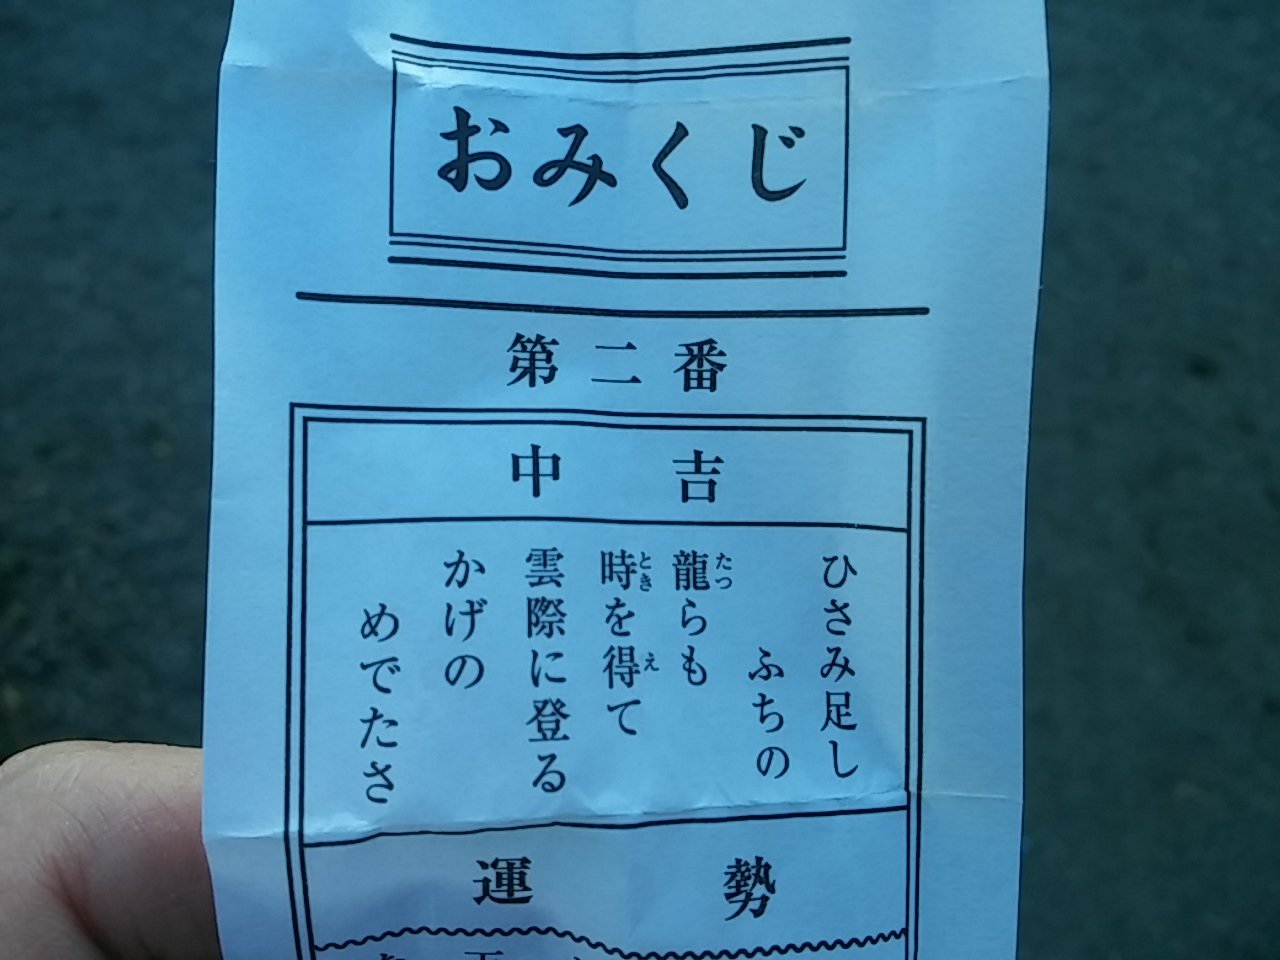 おみくじ
第二番
中吉
ひさみ足し
ふちの
龍らも
たつ
時を得て
とき
え
雲際に登る
かげの
めでたさ
運勢